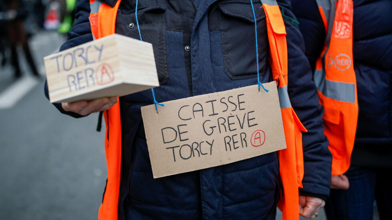 TORCY
RER A
CAISSE
DE GRÈVE
TORCY RER A